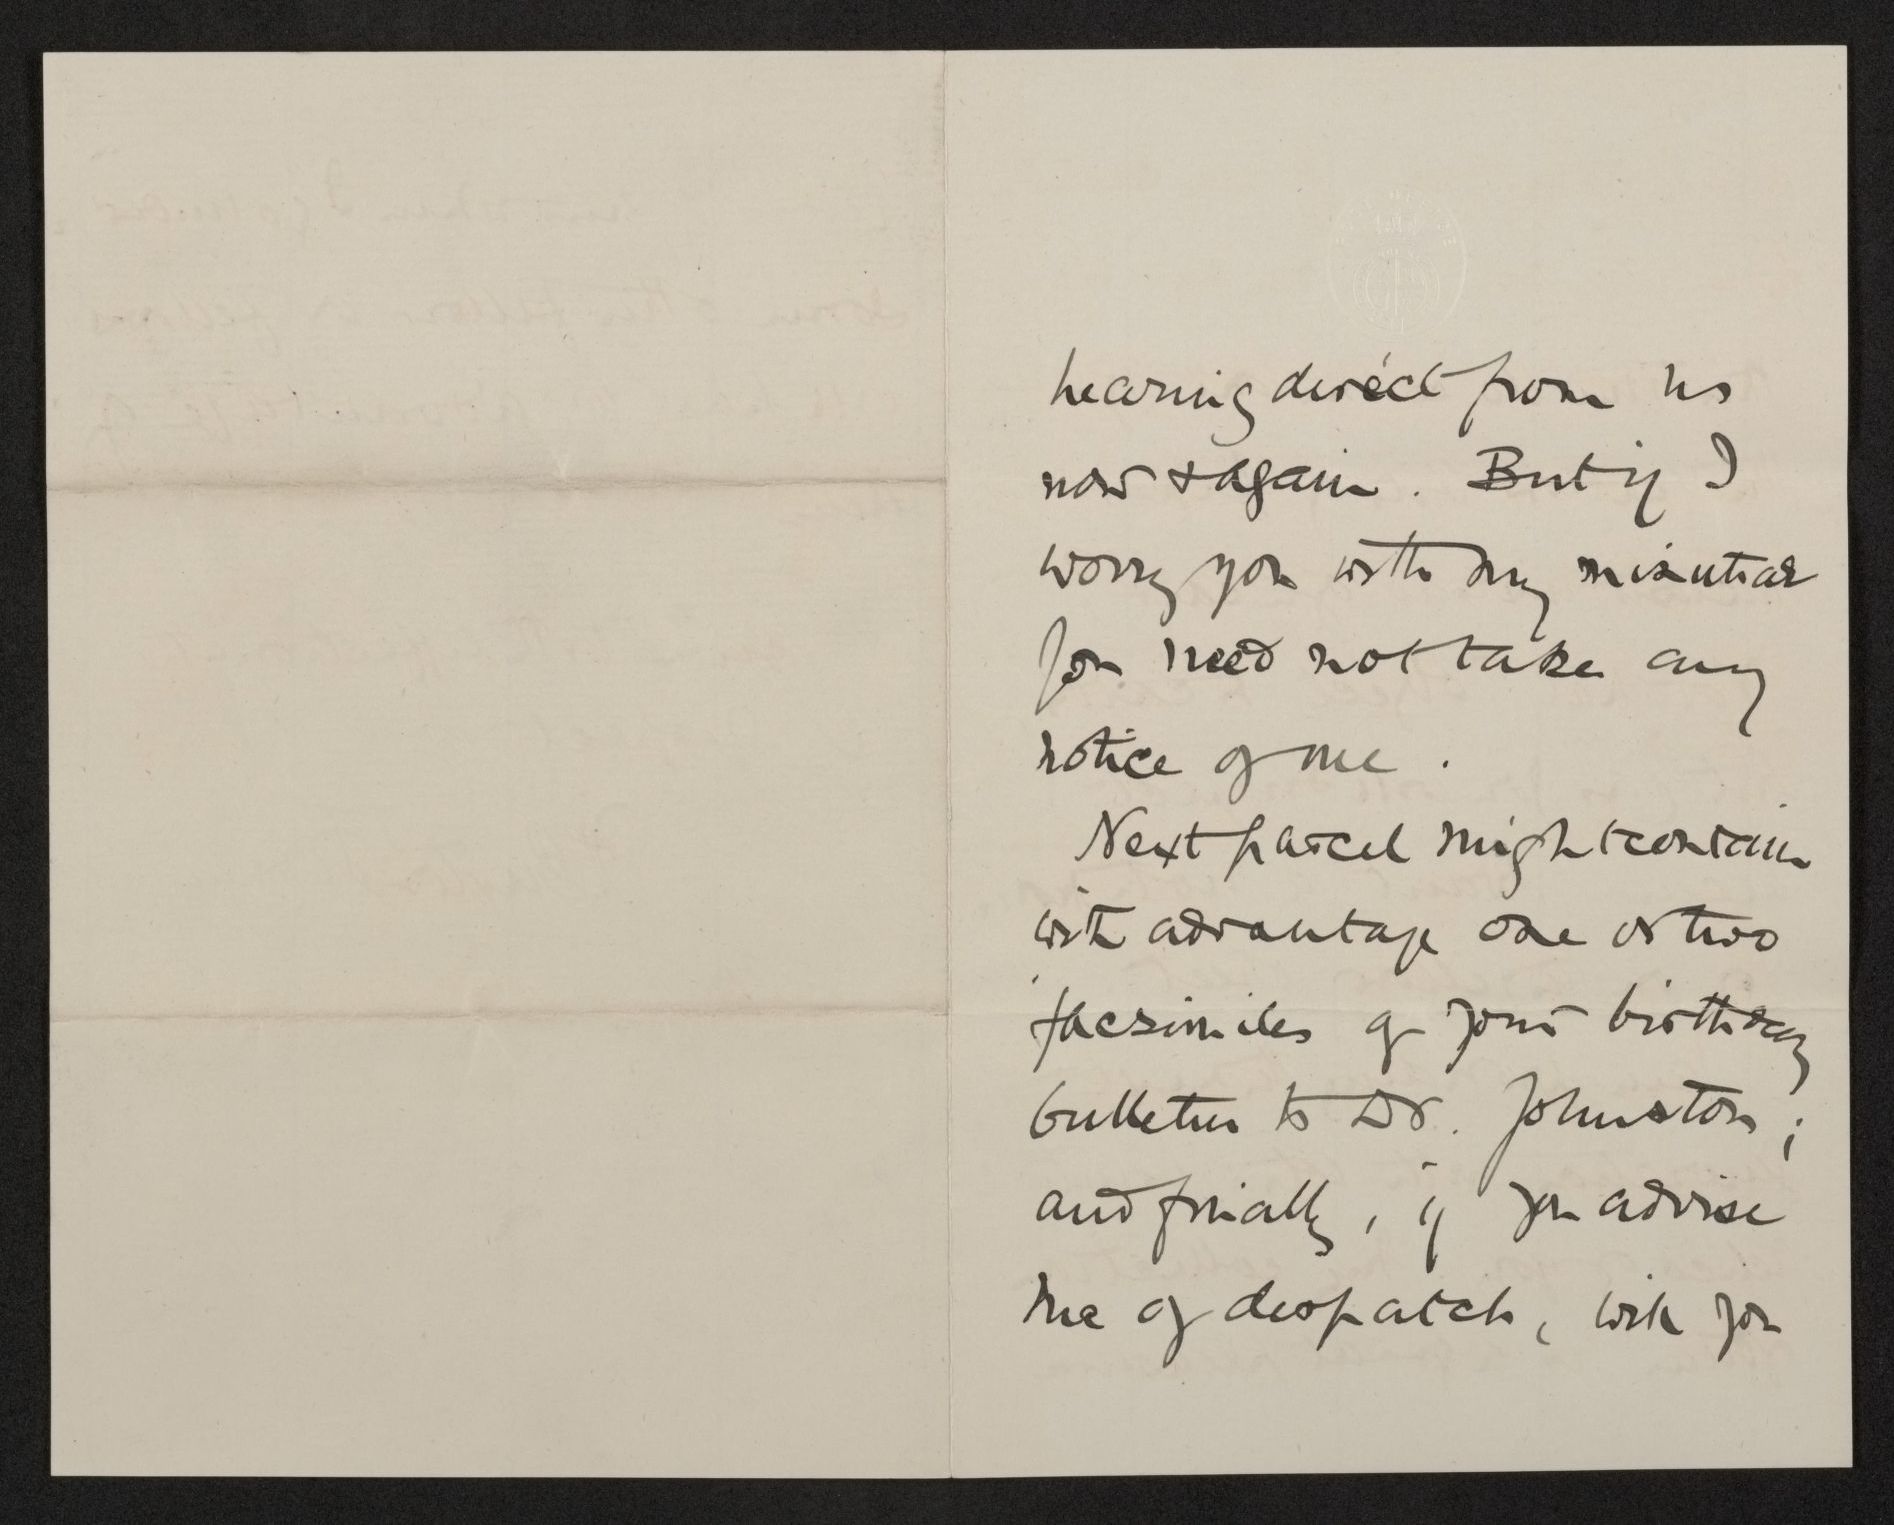 hearing direct from us
now & again. But if I
worry you with my minutiae
you need not take any
notice of me.
Next parcel might contain
with advantage one or two
facsimiles of your birthday
bulletin to Dr. Johnston;
and finally, if you advise
me of despatch, will you